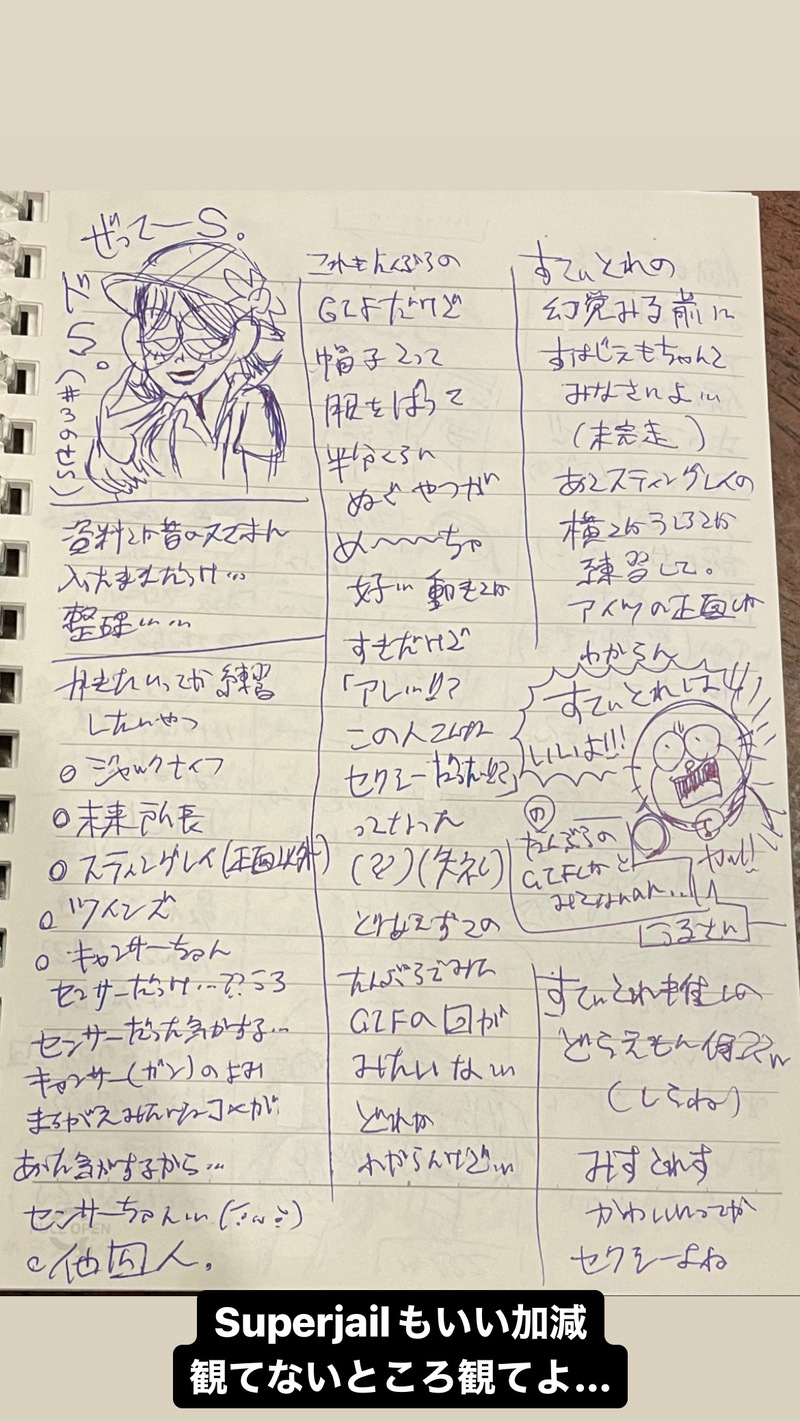 ぜってーS。
でS。
資料とか昔のスマホん
入ったままだっけ…
整理……
かきたいってか練習
したいやつ
○ジャックナイフ
○未来所長
○スティングレイ(正面以外)
○ツインズ
○キャンサーちゃん
センサーだっけ…??こころ
センサーだった気がする…
キャンサー(ガン)のよみ
まちがえみたいなコメが
あった気がするから…
センサーちゃん…
○他囚人。
これもたんぶらの
GIFだけど
帽子とって
服をばって
半分くらい
ぬぐやつが
め〜〜〜ちゃ
好い動きとか
すきだけど
「アレ…!!?
この人こんな
セクシーだったん!!?」
ってなった
(??)(失礼)
とりあえずこの
たんぶらでみた
GIFの回が
みたいな…
どれか
わからんけど…
すてぃとれの
幻覚みる前に
すぱじぇもちゃんと
みなさいよ…
(未完走)
あとスティングレイの
横とかうしろとか
練習して。
アイツの正面しか
わからん
すてぃとれは
いいよ!!!
たんぶらの
GIFしか
みてないのに…
うるさい
すてぃとれも推しの
どらえもん
(しらね)
みすとれす
かわいいってか
セクシーよね
Superjailもいい加減
観てないところ観てよ…